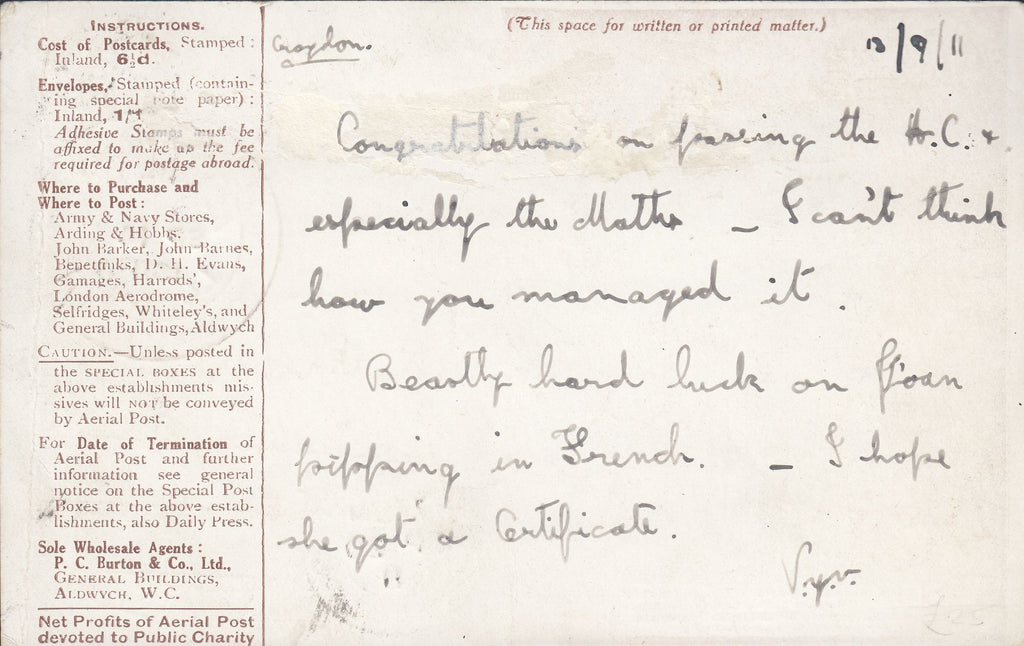 INSTRUCTIONS.
Cost of Postcards, Stamped:
Inland, 6½d.
Envelopes, Stamped (contain-
ing special note paper):
Inland, 1/1
Adhesive Stamps must be
affixed to make up the fee
required for postage abroad.
Where to Purchase and
Where to Post:
Army & Navy Stores,
Arding & Hobbs,
John Barker, John Barnes,
Benetfinks, D. H. Evans,
Gamages, Harrods',
London Aerodrome,
Selfridges, Whiteley's, and
General Buildings, Aldwych
CAUTION.—Unless posted in
the SPECIAL BOXES at the
above establishments mis-
sives will NOT be conveyed
by Aerial Post.
For Date of Termination of
Aerial Post and further
information see general
notice on the Special Post
Boxes at the above estab-
lishments, also Daily Press.
Sole Wholesale Agents:
P. C. Burton & Co., Ltd.,
GENERAL BUILDINGS,
ALDWYCH, W.C.
Net Profits of Aerial Post
devoted to Public Charity
(This space for written or printed matter.)
Croydon.
12/9/11
Congratulations on passing the H.C. &
especially the Maths — I can't think
how you managed it.
Beastly hard luck on Joan
pipping in French. — I hope
she got a Certificate.
V.y.v.
£25